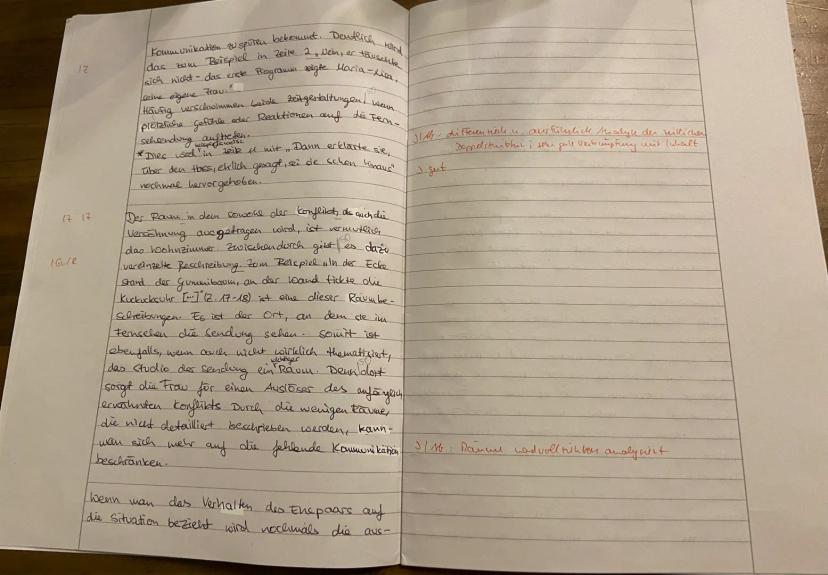 Kommunikation zu spüren bekommt. Deutlich wird
das zum Beispiel in Zeile 2 „Nein, er täuschte
sich nicht - das erste Programm zeigte Maria-Lisa,
seine eigene Frau."
Häufig verschwimmen beide Zeitgestaltungen, wenn
plötzliche Gefühle oder Reaktionen auf die Fern-
sehsendung auftreten.
*Dies wird in Zeile 11 mit „Dann erklärte sie,
über den Hass, ehrlich gesagt, sei sie schon hinaus"
nochmal hervorgehoben.
Der Raum, in dem sowohl der Konflikt, als auch die
Versöhnung ausgetragen wird, ist vermutlich
das Wohnzimmer. Zwischendurch gibt es dazu
vereinzelte Beschreibung. Zum Beispiel „In der Ecke
stand der Gummibaum, an der Wand tickte die
Kuckucksuhr [...]" (Z. 17-18) ist eine dieser Raumbe-
schreibungen. Es ist der Ort, an dem sie im
Fernsehen die Sendung sehen. Somit ist
ebenfalls, wenn auch nicht wirklich thematisiert,
das Studio der Sendung ein wichtiger Raum. Denn dort
sorgt die Frau für einen Auslöser des anfänglich
erwähnten Konflikts. Durch die wenigen Räume,
die nicht detailliert beschrieben werden, kann
man sich mehr auf die fehlende Kommunikation
beschränken.
Wenn man das Verhalten des Ehepaars auf
die Situation bezieht wird nochmals die aus-
12
17 17
IGr/R
J/Ab: differenziert u. ausführlich Analyse der zeitlichen
Doppelstruktur; sehr gute Verknüpfung mit Inhalt
J gut
J/Ab: Räume analysiert